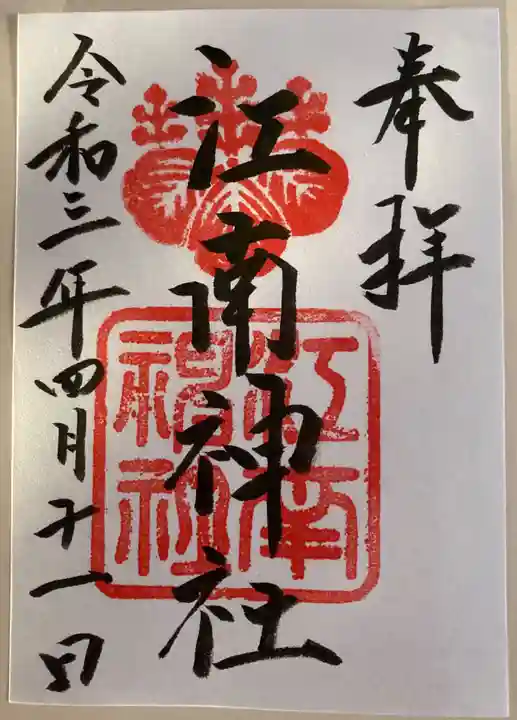 奉拝
江南神社
江南神社
令和三年四月十一日